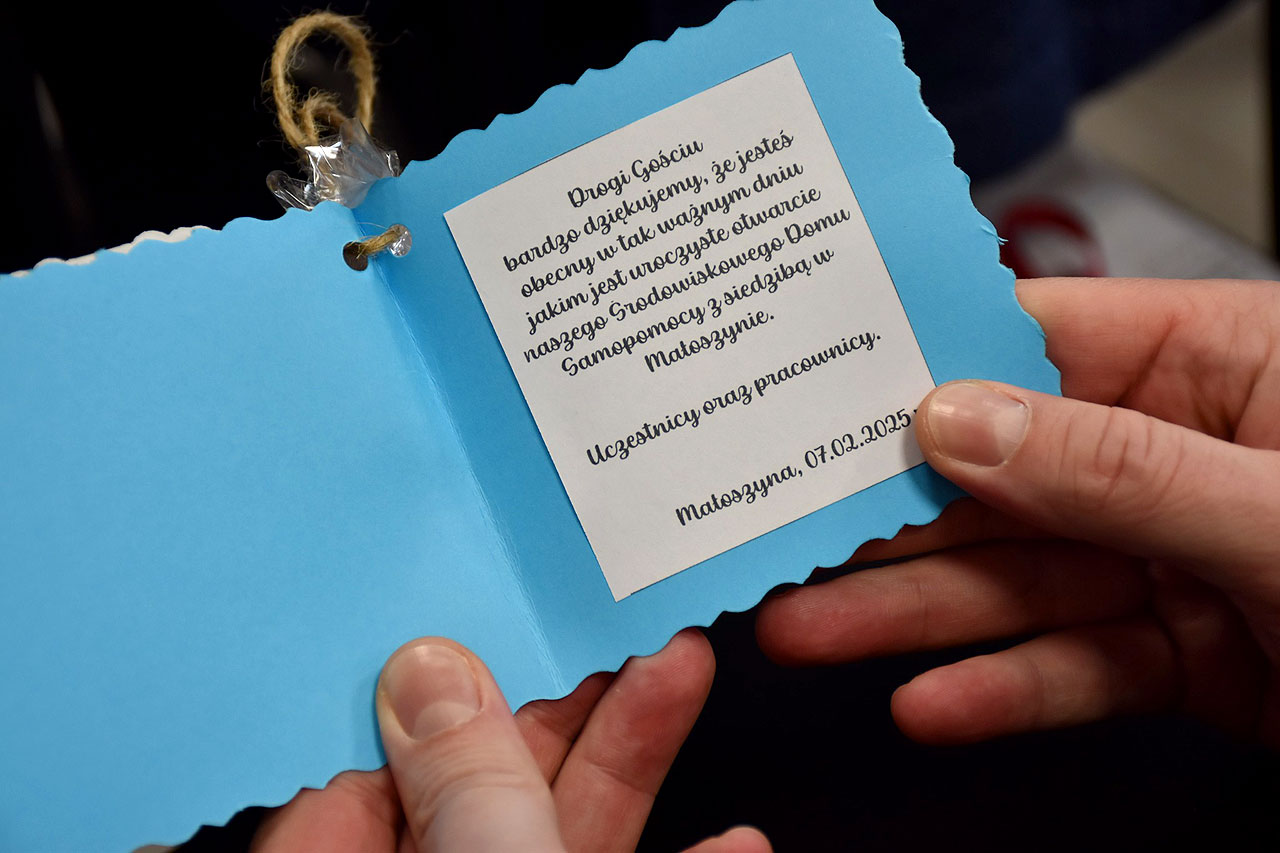 Drogi Gościu
bardzo dziękujemy, że jesteś
obecny w tak ważnym dniu
jakim jest uroczyste otwarcie
naszego Środowiskowego Domu
Samopomocy z siedzibą w
Małoszynie.
Uczestnicy oraz pracownicy.
Małoszyna, 07.02.2025.